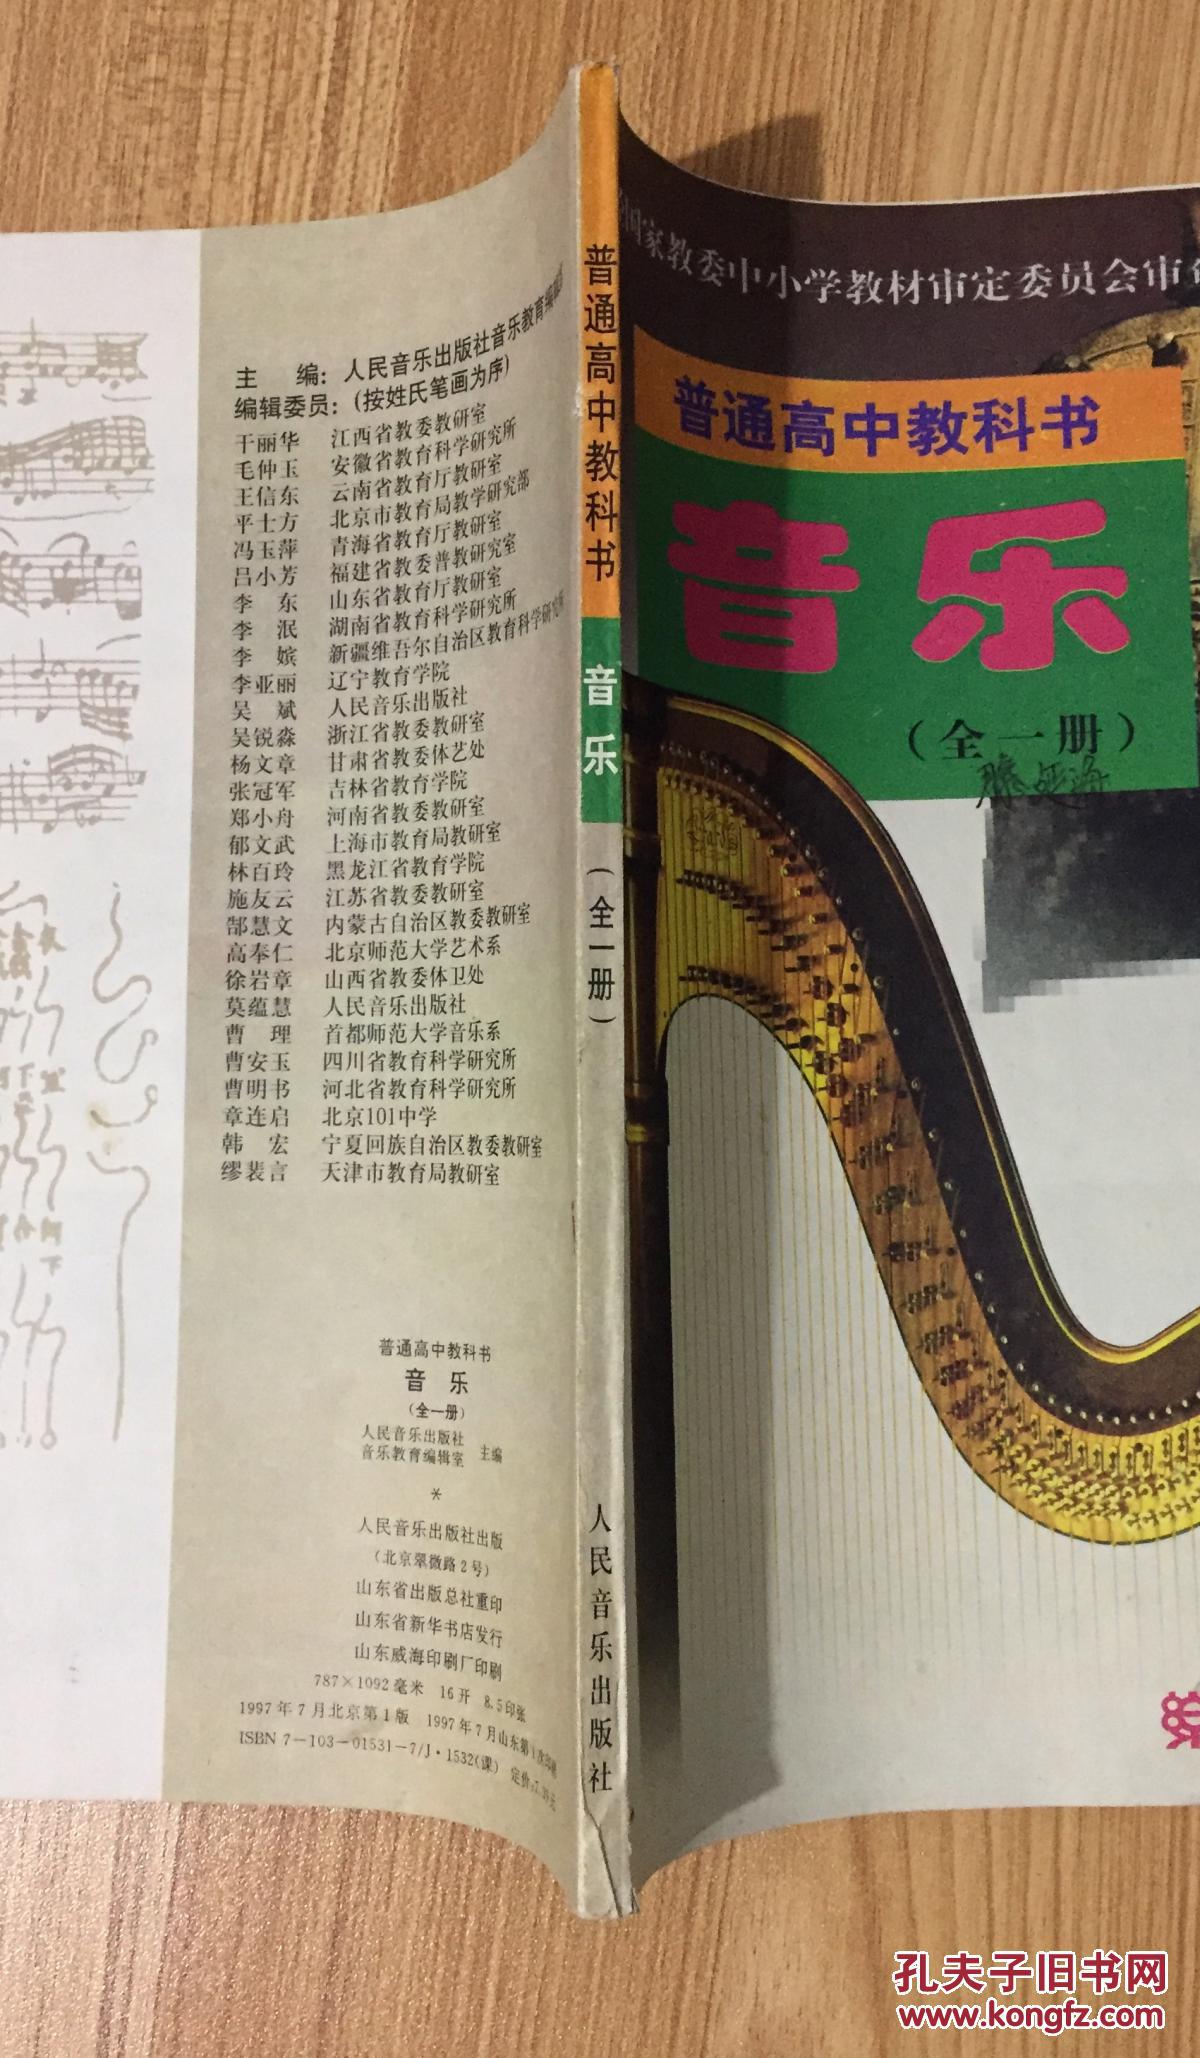 主 编：人民音乐出版社音乐教育编辑室
编辑委员：(按姓氏笔画为序)
干丽华 江西省教委教研室
毛仲玉 安徽省教育科学研究所
王信东 云南省教育厅教研室
平士方 北京市教育局教学研究部
冯玉萍 青海省教育厅教研室
吕小芳 福建省教委普教研究室
李 东 山东省教育厅教研室
李 泯 湖南省教育科学研究所
李 嫔 新疆维吾尔自治区教育科学研究所
李亚丽 辽宁教育学院
吴 斌 人民音乐出版社
吴锐淼 浙江省教委教研室
杨文章 甘肃省教委体艺处
张冠军 吉林省教育学院
郑小舟 河南省教委教研室
郁文武 上海市教育局教研室
林百玲 黑龙江省教育学院
施友云 江苏省教委教研室
郜慧文 内蒙古自治区教委教研室
高奉仁 北京师范大学艺术系
徐岩章 山西省教委体卫处
莫蕴慧 人民音乐出版社
曹 理 首都师范大学音乐系
曹安玉 四川省教育科学研究所
曹明书 河北省教育科学研究所
章连启 北京101中学
韩 宏 宁夏回族自治区教委教研室
缪裴言 天津市教育局教研室
普通高中教科书
音 乐
(全一册)
人民音乐出版社
音乐教育编辑室 主编
*
人民音乐出版社出版
(北京翠微路2号)
山东省出版总社重印
山东省新华书店发行
山东威海印刷厂印刷
787×1092毫米 16开 8.5印张
1997年7月北京第1版 1997年7月山东第1次印刷
ISBN 7-103-01531-7/J·1532(课) 定价:7.39元
普通高中教科书
音乐
(全一册)
人民音乐出版社
国家教委中小学教材审定委员会审
普通高中教科书
音乐
(全一册)
孔夫子旧书网
www.kongfz.com